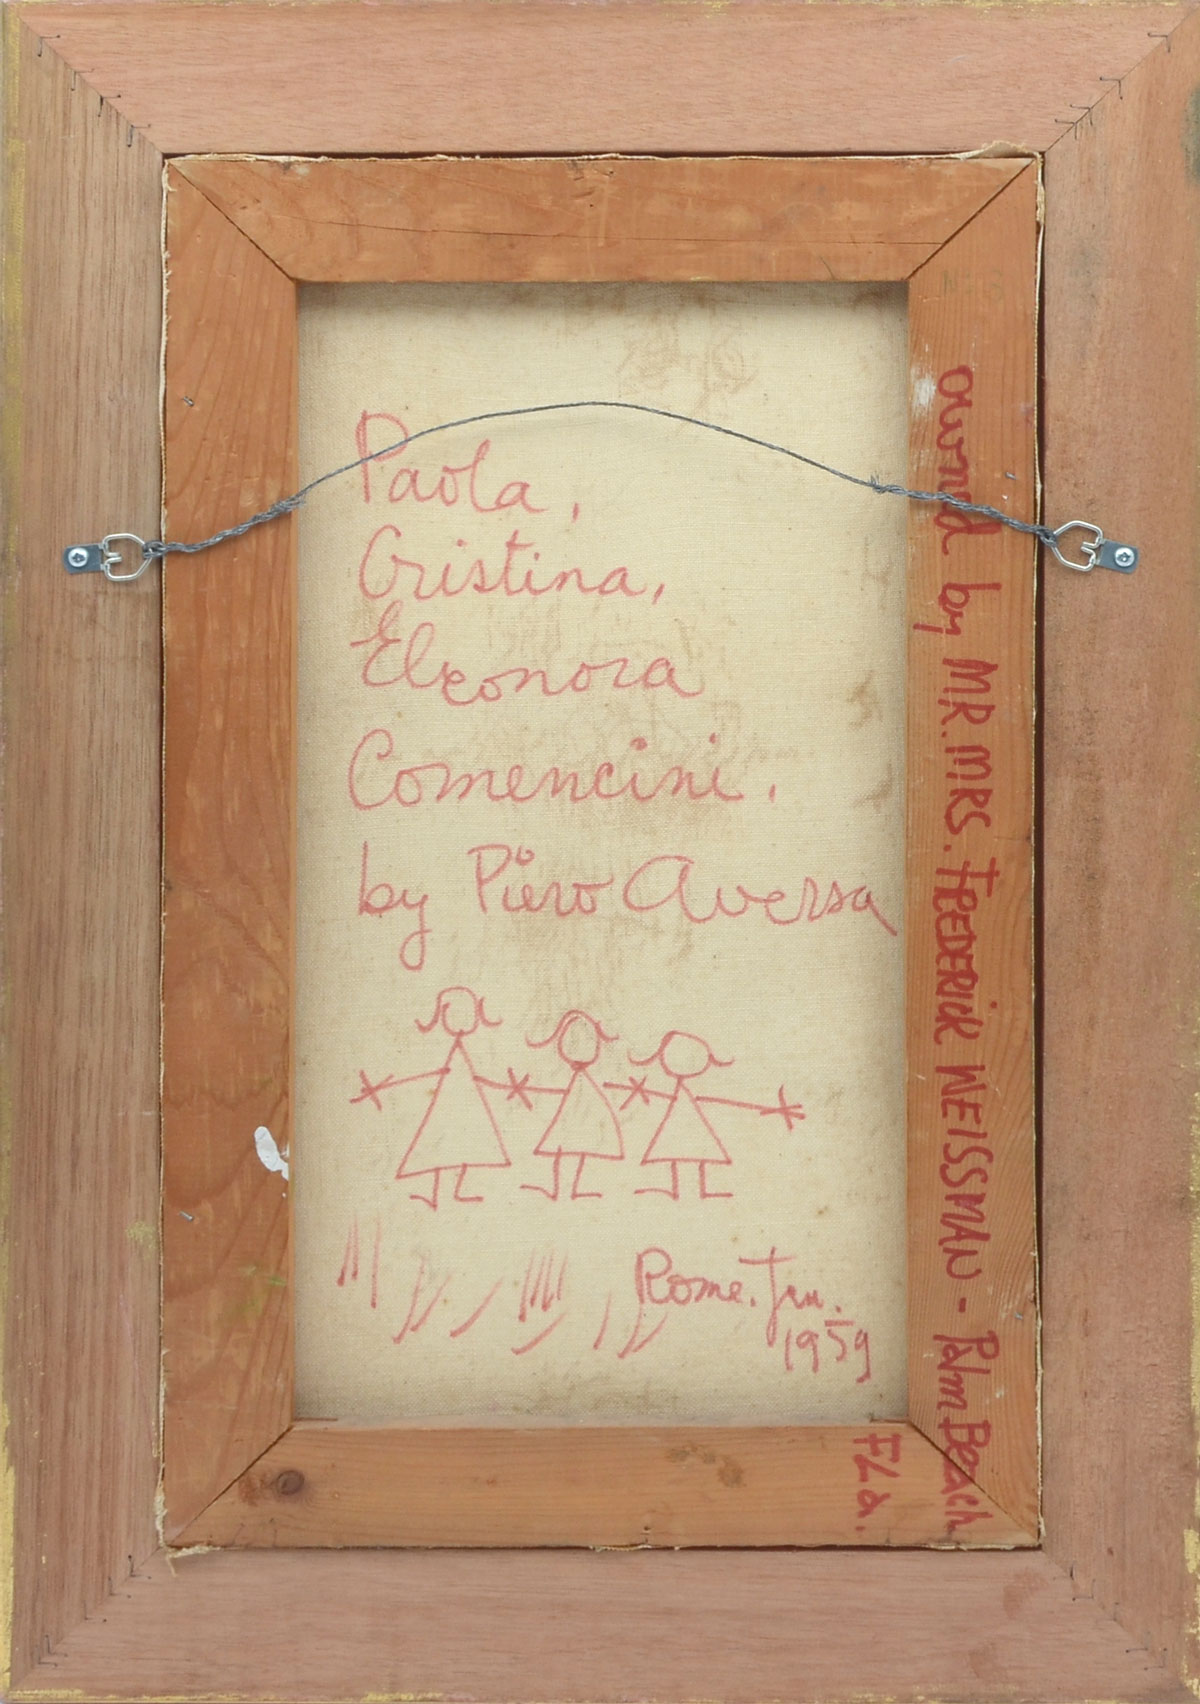 Paola,
Cristina,
Eleonora
Comencini.
by Piero Aversa
Rome. Jan.
1959
owned by MR. MRS. FREDERICK WEISSMAN - Palm Beach
FLa.